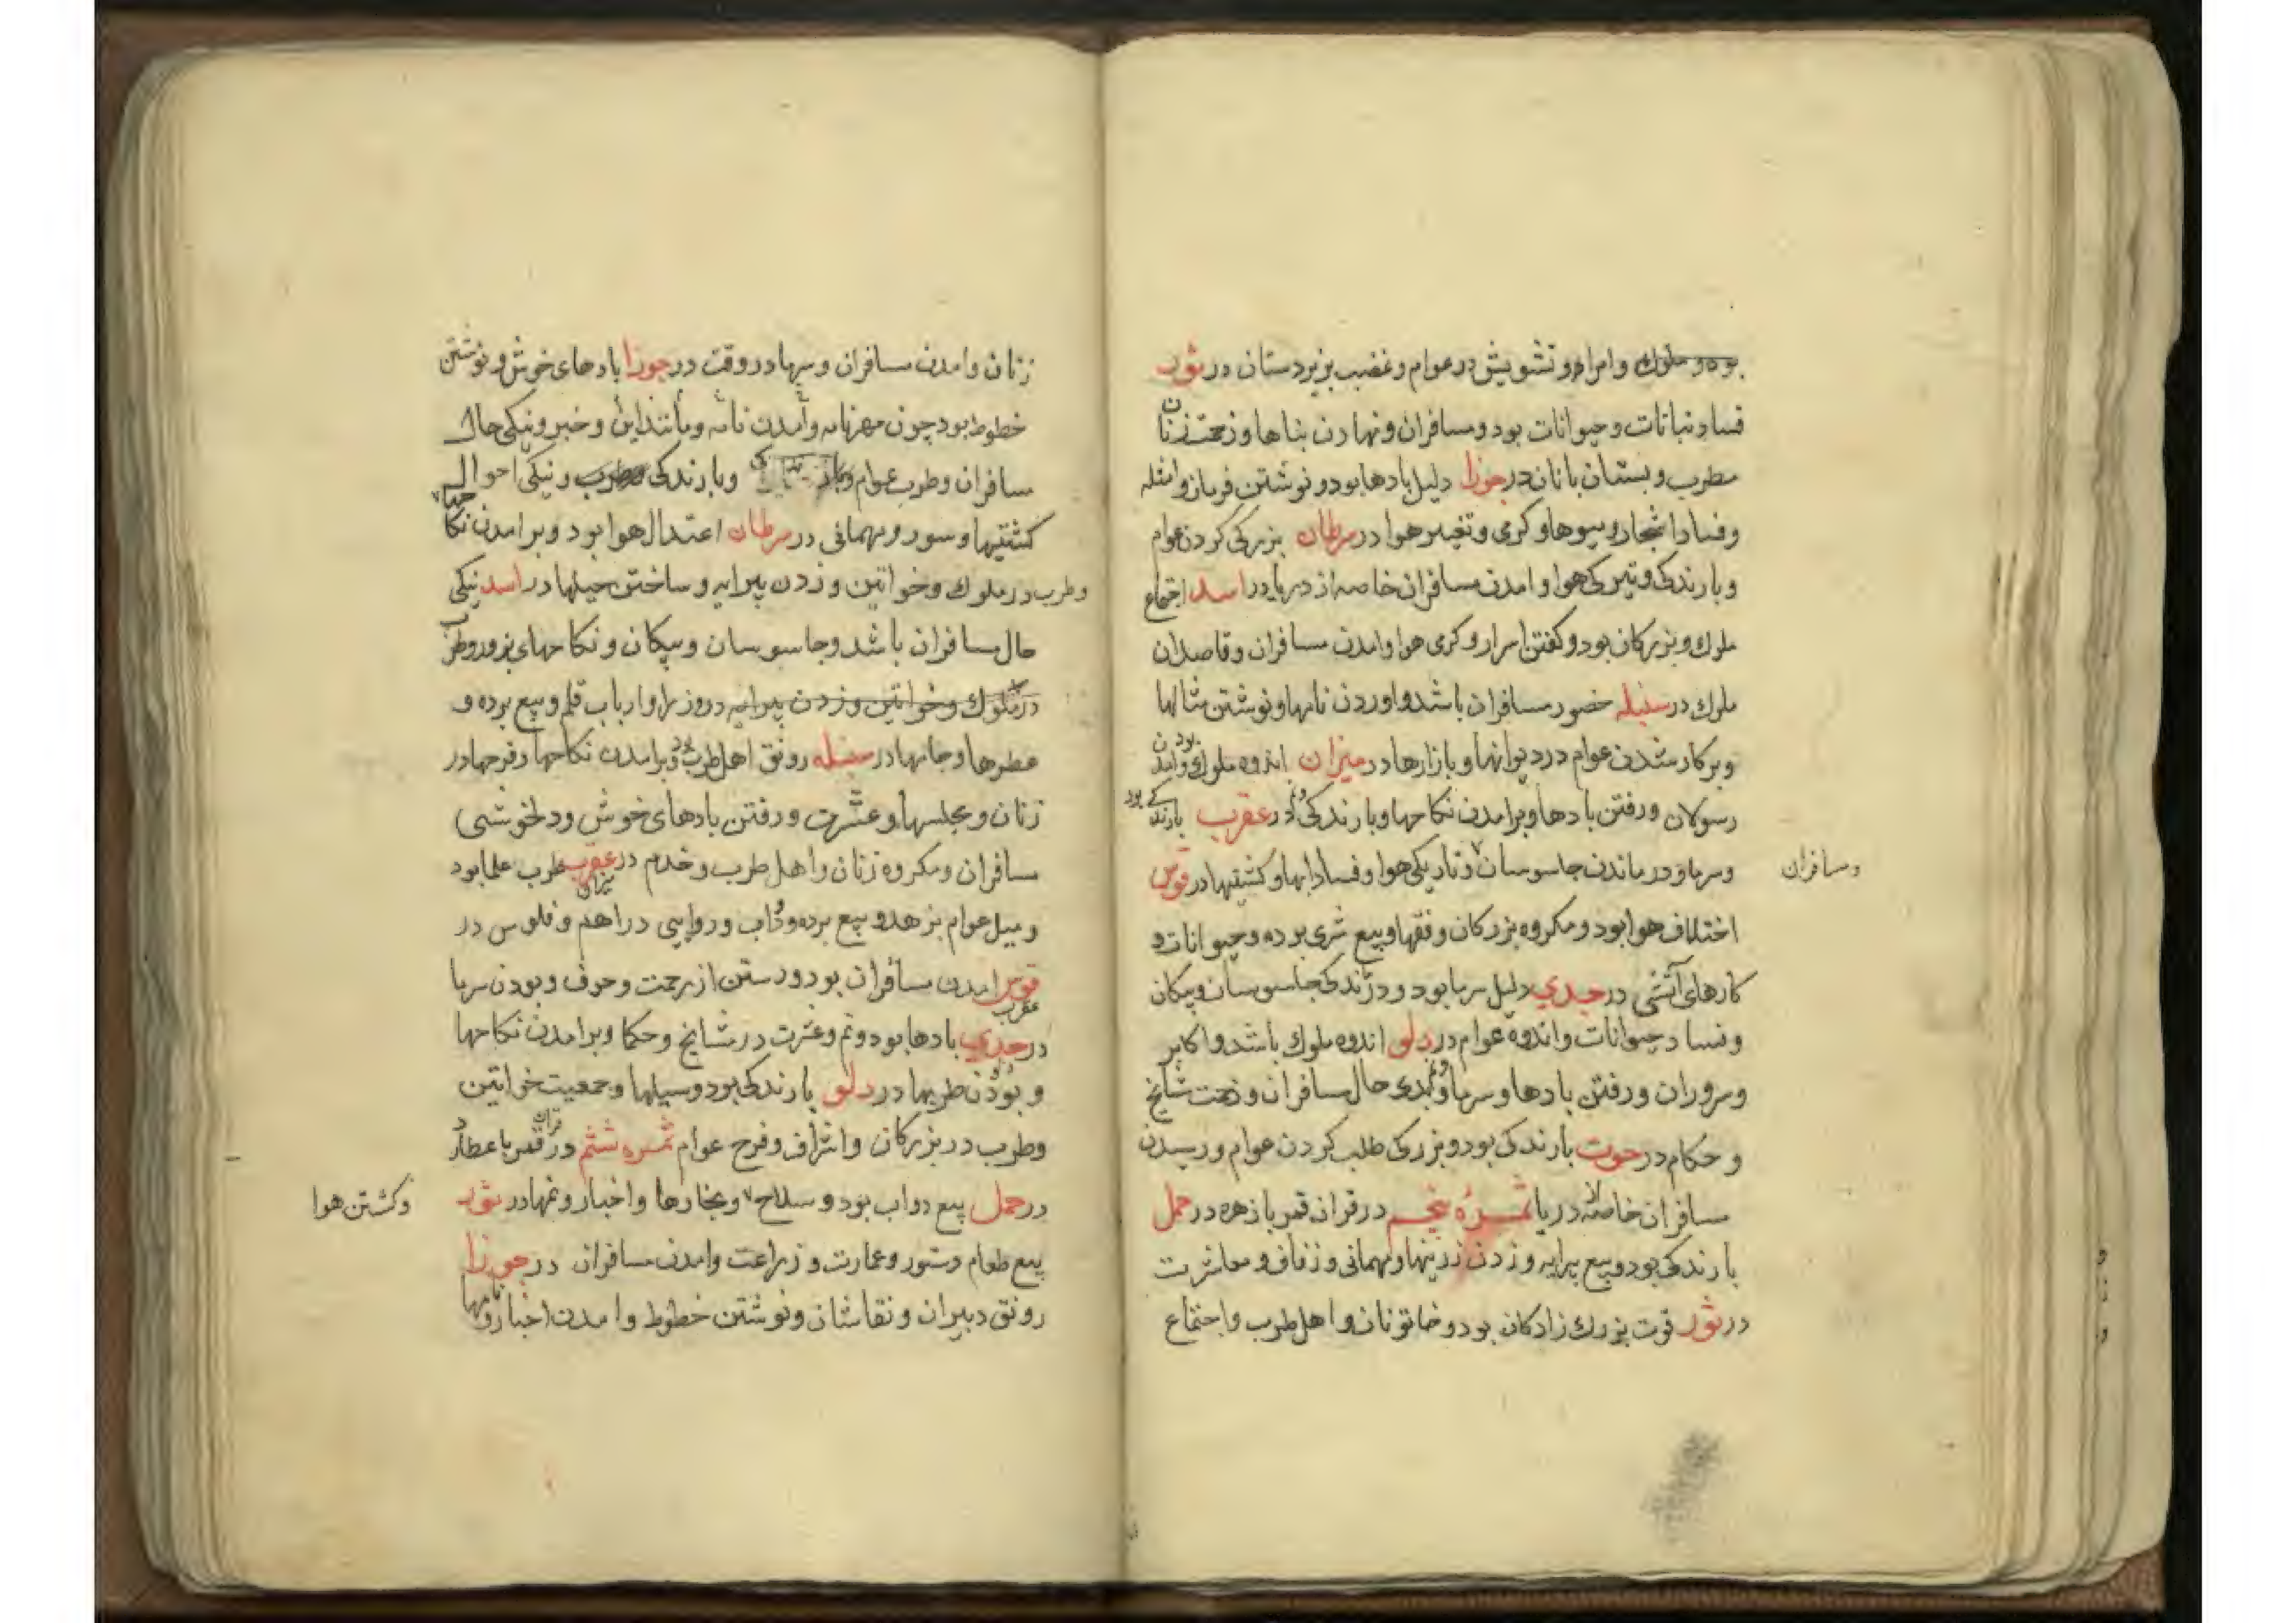 بوده و ملوك وامرا و تشویش در عوام و غضب بر زیردستان در ثور
فساد نباتات و حیوانات بود و مسافران و نهادن بناها و زحمت زنان
مطرب و بستان بانان در جوزا دلیل بادها بود و نوشتن فرمان وامثله
و فساد اشجار و میوها و کرمی و تغییر هوا در سرطان بزرکی کردن عوام
و بارندکی و تیرکی هوا و امدن مسافران خاصه از دریا در اسد اجتماع
ملوك و بزرکان بود و کفتن اسرار و کرمی هوا و امدن مسافران و قاصدان
ملوك در سنبله حضور مسافران باشد و اوردن نامها و نوشتن مثالها
و بر کار شدن عوام در دیوانها و بازارها در میزان اندوه ملوك بود و امدن
رسولان و رفتن بادها و برامدن نکاحها و بارندکی و نم در عقرب بارندکی بود
و سرما و درماندن جاسوسان و تاریکی هوا و فساد ابها و کشتیها در قوس
و مسافران
اختلاف هوا بود و مکروه بزرکان و فقها و بیع شری برده و حیوانات و
کارهای آتشی در جدي دلیل سرما بود و درندکی جاسوسان و پیکان
و فساد حیوانات و اندوه عوام در دلو اندوه ملوك باشد و اکابر
و سروران و رفتن بادها و سرما و نم و بدی حال مسافران و زحمت مشایخ
و حکام در حوت بارندکی بود و بزرکی طلب کردن عوام و رسیدن
مسافران خاصه از دریا ثمره پنجم در قران قمر با زهره در حمل
بارندکی بود و بیع پیرایه و زدن زرینها و مهمانی و زفاف و معاشرت
در ثور قوت بزرك زادکان بود و خاتونان و اهل طرب و اجتماع
زنان و امدن مسافران و در وقت در جوزا بادهای خوش و نوشتن
خطوط بود چون مهرنامه و آمدن نامه و مانند این و خبر و نیکی حال
مسافران و طرب عوام و بارندکی و نیکی احوال
کشتیها و سور و مهمانی در سرطان اعتدال هوا بود و برامدن نکاحها
و طرب در ملوك و خواتین و زدن پیرایه و ساختن حیلها در اسد نیکی
حال مسافران باشد و جاسوسان و پیکان و نکاحهای بزور و طرب
در ملوك و خواتین و زدن پیرایه در وزرا و ارباب قلم و بیع برده و
عطرها و جامها در سنبله رونق اهل طرب بود و برامدن نکاحها و فرحها در
زنان و مجلسها و عشرت و رفتن بادهای خوش و دلخوشی
مسافران و مکروه زنان و اهل طرب و خدم در عقرب میزان طرب علما بود
و میل عوام بزهد و بیع برده و دواب و روایی دراهم و فلوس در
قوس عقرب امدن مسافران بود و رستن از زحمت و خوف و بودن سرما
در جدي بادها بود و نم و عشرت در مشایخ و حکما و برامدن نکاحها
و بودن طربها در دلو بارندکی بود و سیلها و جمعیت خواتین
و طرب در بزرکان و اشراف و فرح عوام ثمره ششم در قران قمر با عطارد
در حمل بیع دواب بود و سلاح و بخارها و اخبار و نمها در ثور
و کشتن هوا
بیع طعام و ستور و عمارت و زراعت و امدن مسافران در جوزا
رونق دبیران و نقاشان و نوشتن خطوط و امدن اخبار و نامها